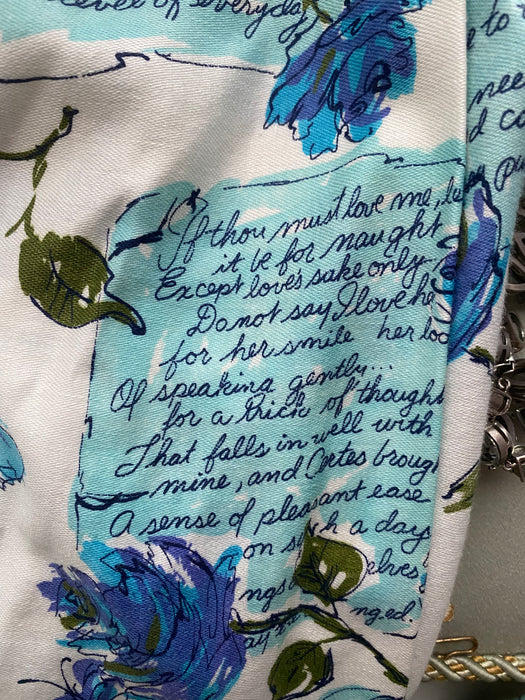 level of everyday
If thou must love me, le
it be for naught
Except love's sake only
Do not say I love he
for her smile her loo
Of speaking gently...
for a trick of though
That falls in well with
mine, and Certes broug
A sense of pleasant ease
on such a day
elves
ngs
ay nged.
e to
nee
d co